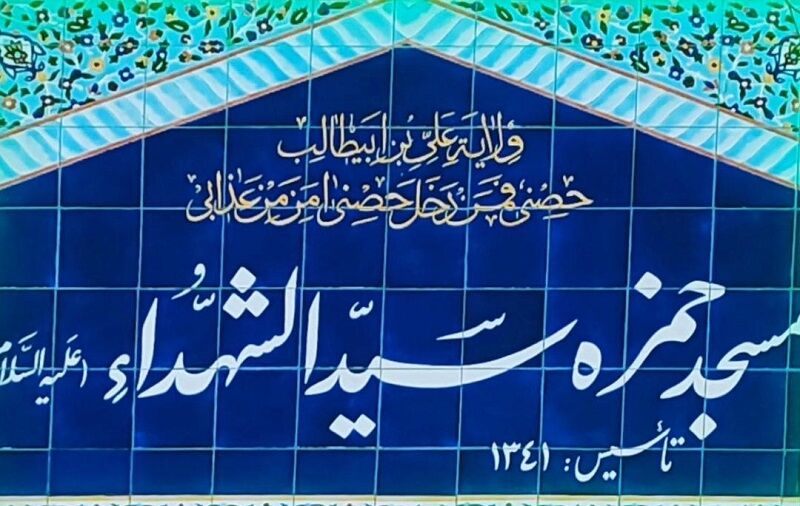 ولایة علیّ بن ابیطالب
حصنی فمن دخل حصنی امن من عذابی
مسجد حمزه سیّد الشّهداء (علیه السّلام
تأسیس: ۱۳۴۱